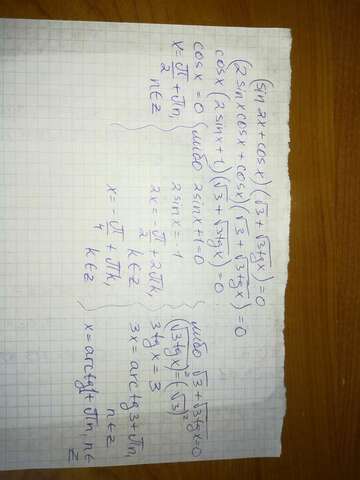 (sin 2x + cos x)(√3 + √3tgx) = 0
(2 sinx cosx + cosx)(√3 + √3tgx) = 0
cosx (2 sinx + 1)(√3 + √3tgx) = 0
cos x = 0
x = π/2 + πn,
n ∈ z
либо 2 sinx + 1 = 0
2 sinx = -1
2x = -π/2 + 2πk,
k ∈ z
x = -π/4 + πk,
k ∈ z
либо √3 + √3tgx = 0
(√3tgx)² = (-√3)²
3tgx = 3
3x = arctg3 + πn,
n ∈ z
x = arctg1 + πn, n ∈
z